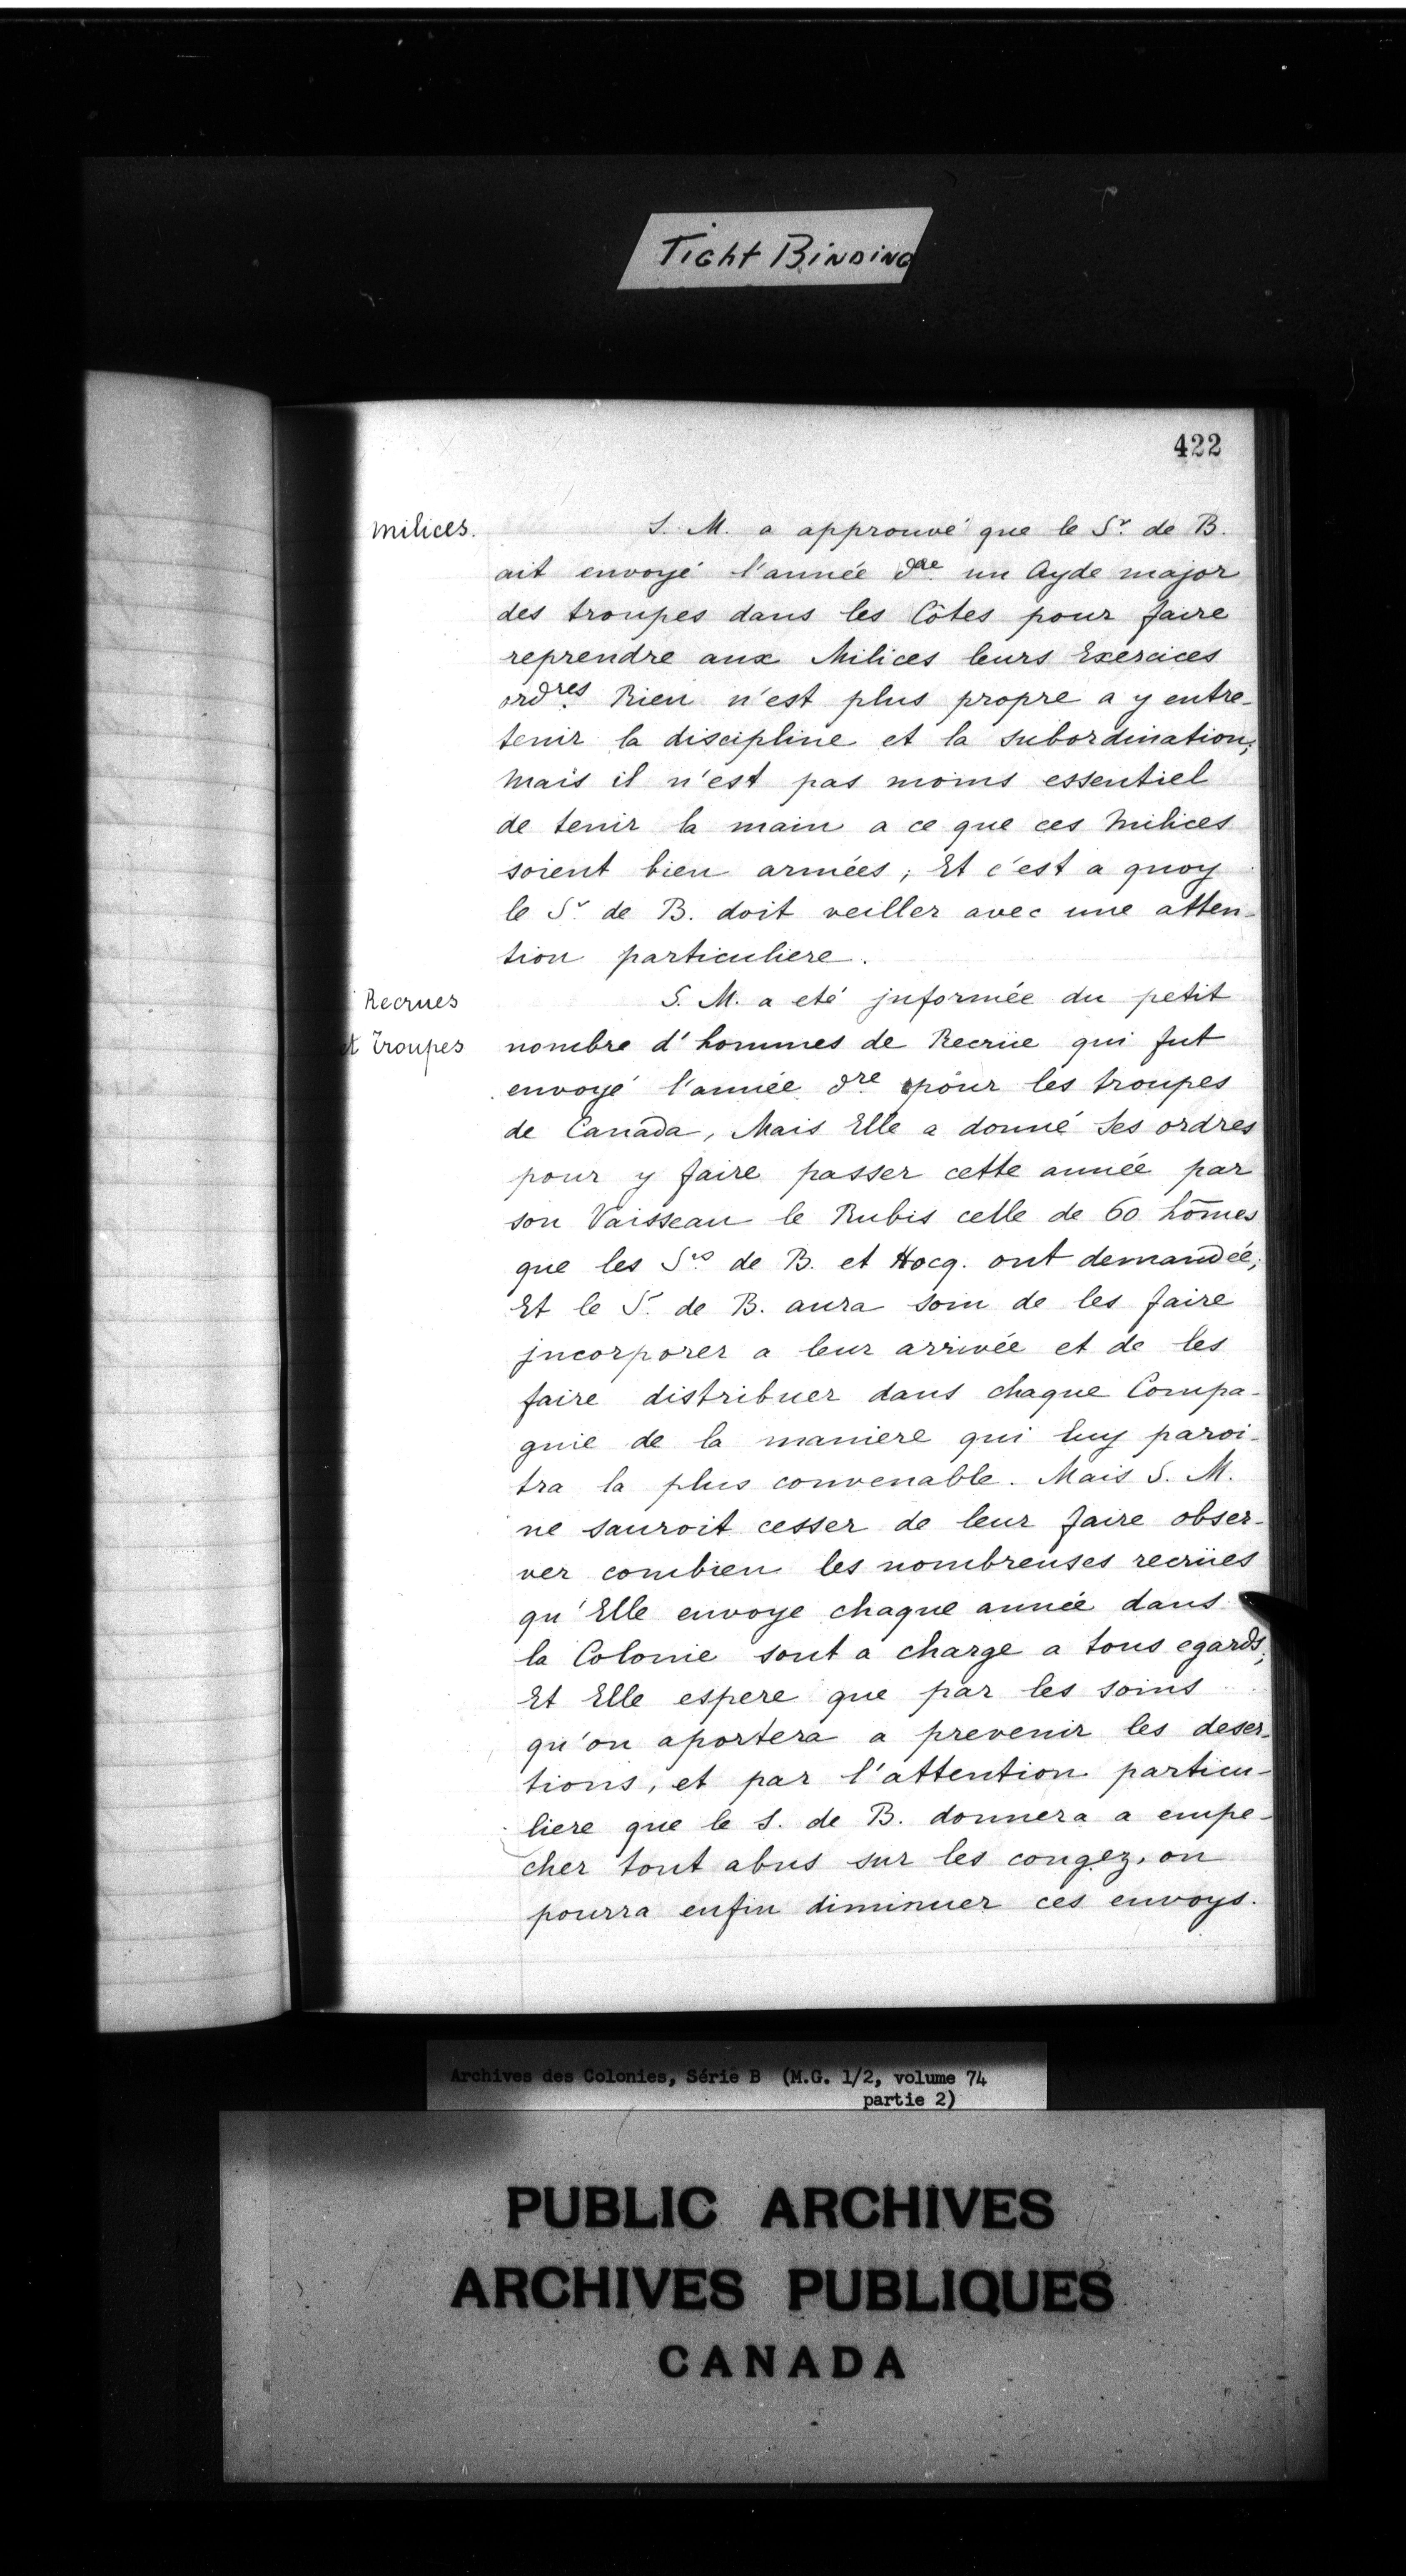 Tight Binding
422
Milices.
S. M. a approuvé que le Sr. de B.
ait envoyé l'année dre. un Ayde major
des troupes dans les Côtes pour faire
reprendre aux Milices leurs Exercices
ordres. Rien n'est plus propre a y entre-
tenir la discipline et la subordination;
Mais il n'est pas moins essentiel
de tenir la main a ce que ces Milices
soient bien armées; Et c'est a quoy
le Sr. de B. doit veiller avec une atten-
tion particuliere.
Recrues
et Troupes
S. M. a eté informée du petit
nombre d'hommes de Recrüe qui fut
envoyé l'année dre. pour les troupes
de Canada, Mais Elle a donné Ses ordres
pour y faire passer cette année par
son Vaisseau le Rubis celle de 60 hom̄es
que les Srs. de B. et Hocq. ont demandée;
Et le S. de B. aura soin de les faire
incorporer a leur arrivée et de les
faire distribuer dans chaque Compa-
gnie de la maniere qui luy paroi-
tra la plus convenable. Mais S. M.
ne sauroit cesser de leur faire obser-
ver combien les nombreuses recrües
qu'Elle envoye chaque année dans
la Colonie sont a charge a tous egards;
Et Elle espere que par les soins
qu'on aportera a prevenir les deser-
tions, et par l'attention particu-
liere que le S. de B. donnera a empe-
cher tout abus sur les congez, on
pourra enfin diminuer ces envoys.
Archives des Colonies, Série B (M.G. 1/2, volume 74
partie 2)
PUBLIC ARCHIVES
ARCHIVES PUBLIQUES
CANADA